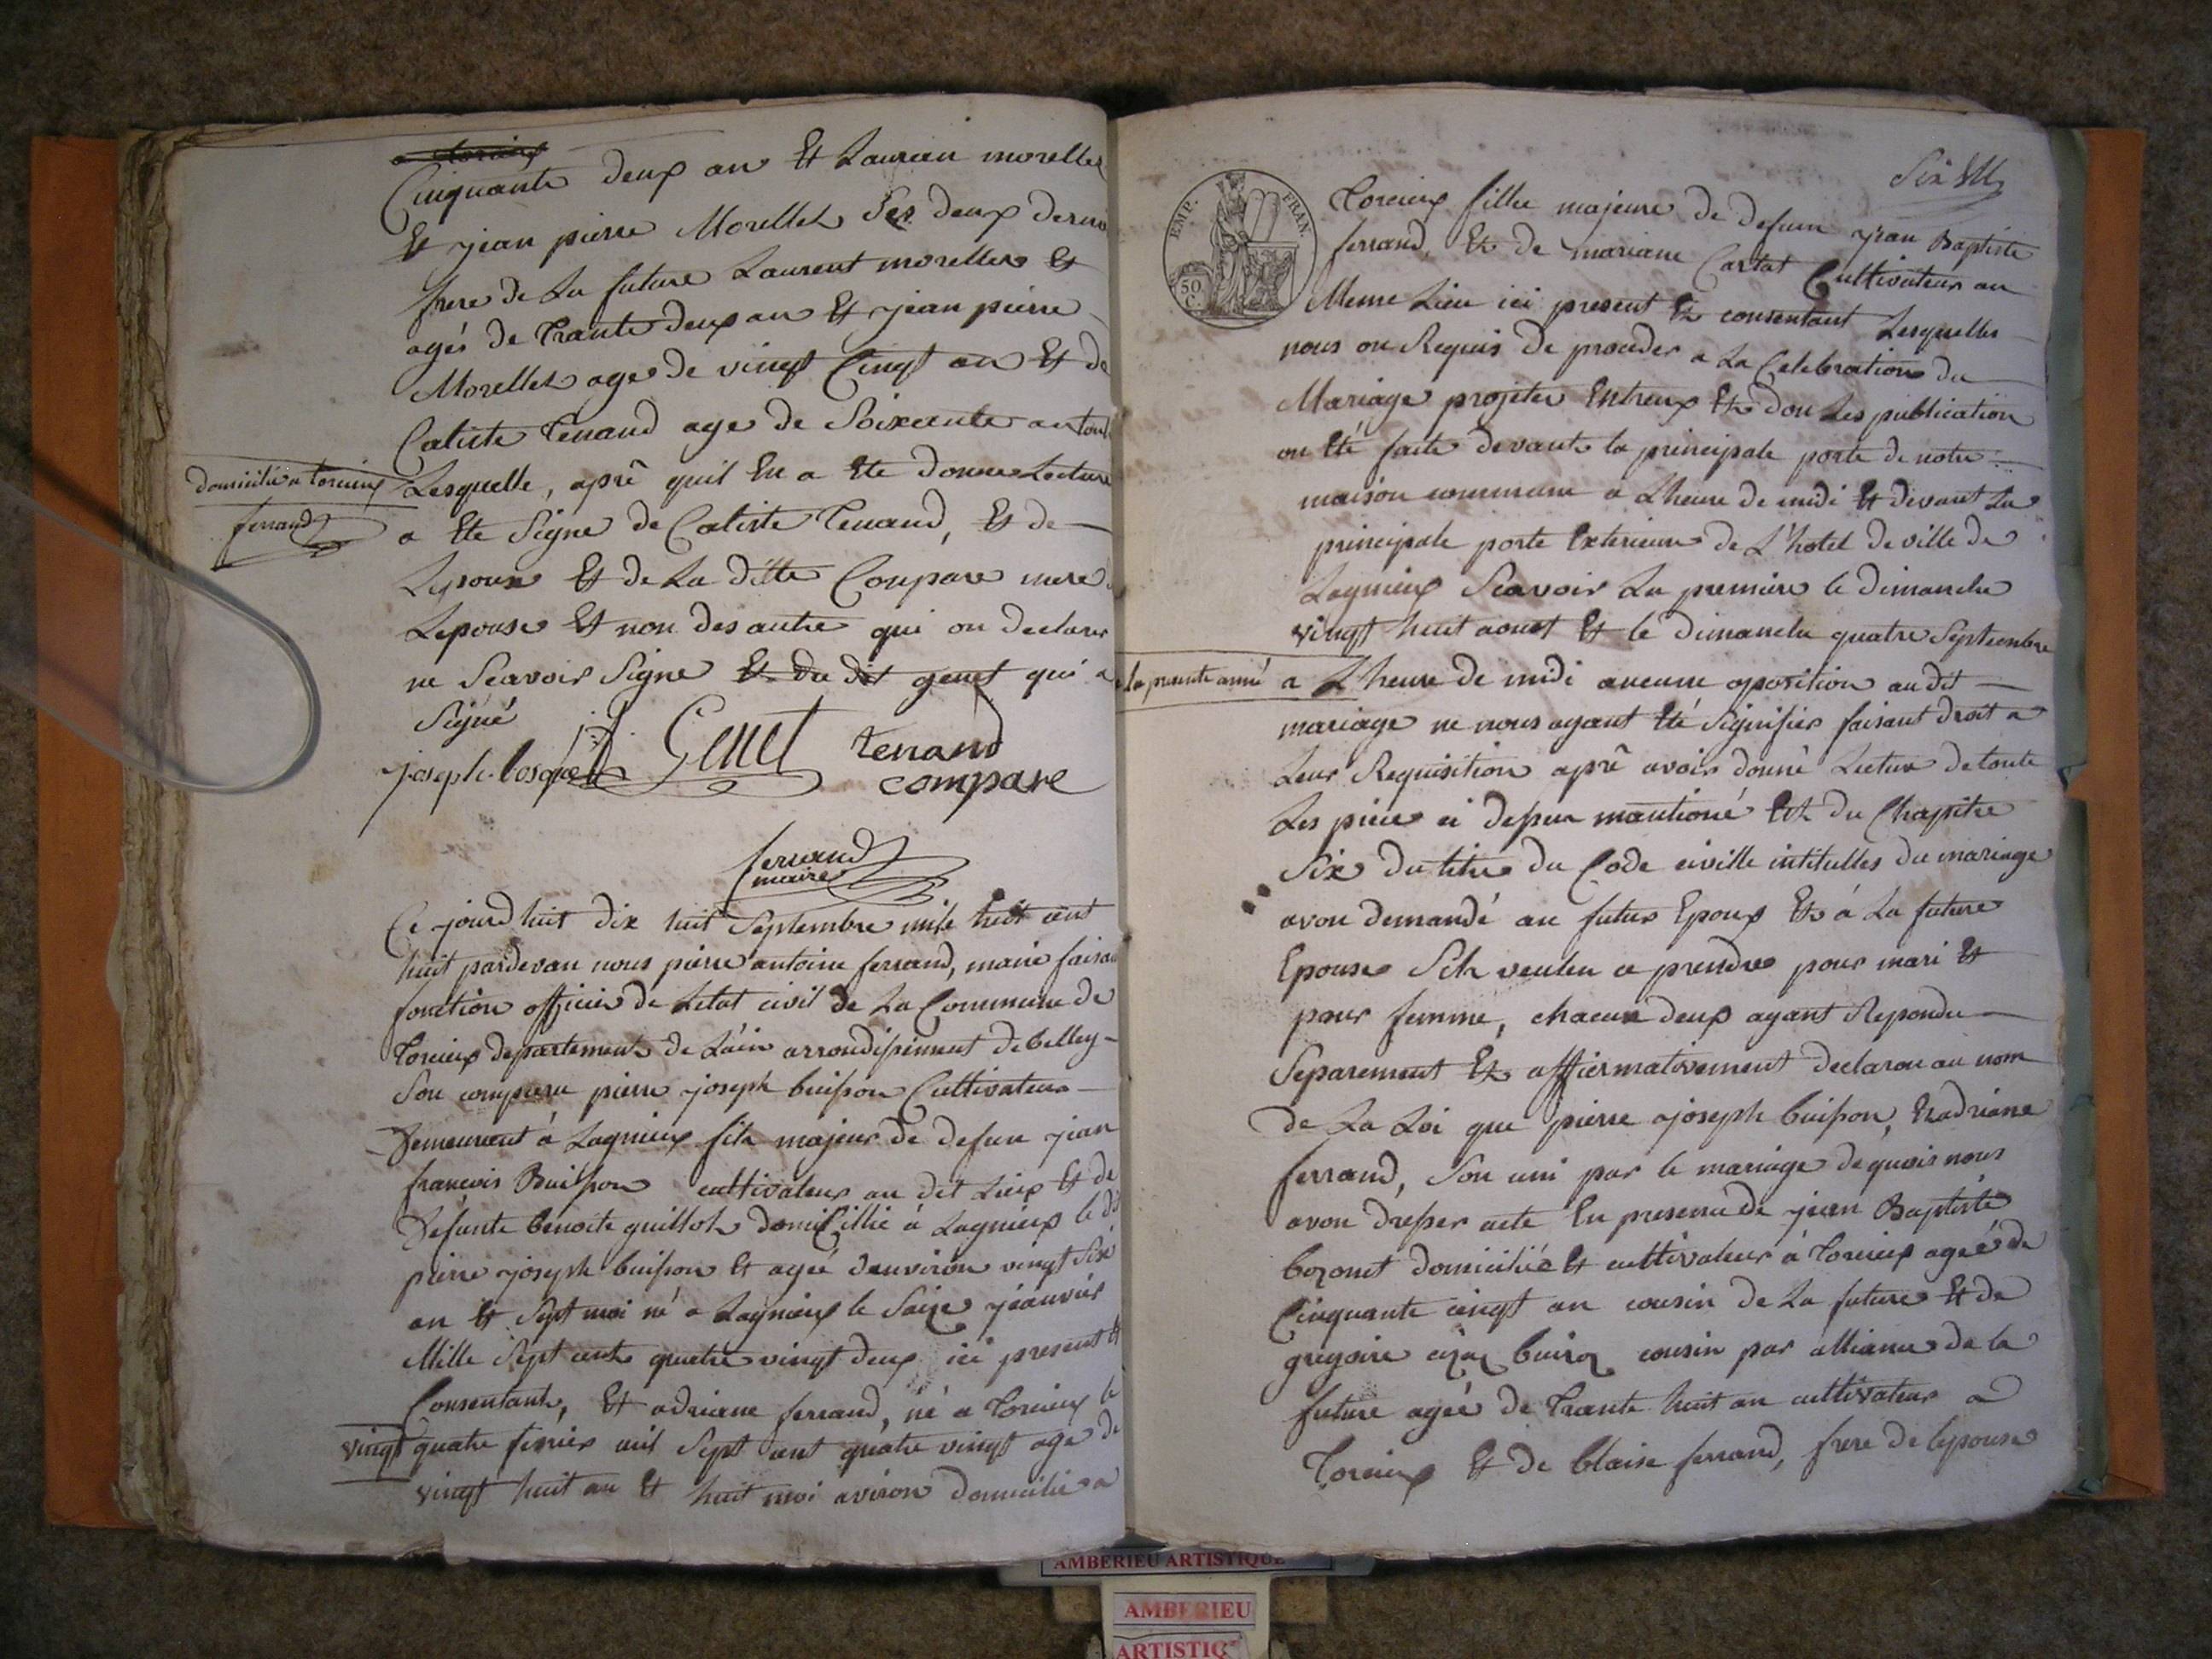 a torcieux
Cinquante deux an Et Laurian morellet
Et jean pierre Morellet Ses deux dernie
frere de La future Laurent morellet Et
agés de trante deux an Et jean pierre
Morellet age de vingt Cingt an Et de
Caliste tenand age de Soixante an tout
domicilié a torcieux
ferrand
Lesquelle, aprê quil En a Ete donne Lecture
a Ete Signe de Caliste tenand, Et de
Lepoux Et de La ditte Conpare mere
Lepouse Et non des autre qui on declarer
ne Scavoir Signe Et du dit genet qui a
Signé
joseph bosque Genet tenand
compare
ferrand
maire
Ce jourdhuit dix huit Septembre mile huit cent
huit pardevan nous pierre antoine ferrand, maire faisan
fonction officier de Letat civil de La Commune de
torcieux departement de Láin arrondissement de belley
Son comparu pierre joseph buisson Cultivateur
Demeurant à Lagnieux fils majeur de defun jean
francois Buisson cultivateur au dit Lieux Et de
Defunte benoite guillot domicillie à Lagnieux le dt
pierre joseph buisson Et ageé denviron vingt Six
an Et Sept moi né a Lagnieux le Saize jeanvier
Mille Sept cent quatre vingt deux ici present Et
Consentant, Et adriane ferrand, né a torcieux le
vingt quatre fevrier mil Sept cent quatre vingt age de
vingt huit an Et huit moi aviron domicilie a
EMP. FRAN.
50 C.
Six
torcieux fille majeure de defun jean Baptiste
ferrand, Et de mariane Cartat Cultivateur au
Meme Lieu ici present Et consentant Lesquelles
nous on Requis de proceder a La Celebration du
Mariage projeter Entreux Et don Les publication
on Eté faite devant la principale porte de notre
maison commune a Lheure de midi Et devant La
principale porte Exterieure de L'hotel de ville de
Lagnieux Scavoir La premiere le dimanche
vingt huit aoust Et le dimanche quatre Septembre
la presente anné a L'heure de midi aucune oposition au dit
mariage ne nous ayant Eté Signifier faisant droit a
Leur Requisition aprê avoir donné Lecture de toute
Les piece ci dessu mantioné Et du Chapitre
Six du titre du Code civille intitulles du mariage
avon demandé au futur Epoux Et á La future
Epouse Sils veulen ce prendre pour mari Et
pour femme, chacun deux ayant Repondu
Separement Et affirmativement declaron au nom
de La Loi que pierre joseph buisson, Et adriane
ferrand, Son uni par le mariage de quoi nous
avon dresser acte En presence de jean Baptiste
bozonet domicilié Et cultivateur à torcieux ageé de
Cinquante cingt an cousin de La future Et de
gregoire cousin par alliance de la
future ageé de trante huit an cultivateur a
torcieux Et de blaise ferrand, frere de lepouse
AMBERIEU ARTISTIQUE
AMBERIEU
ARTISTIQ